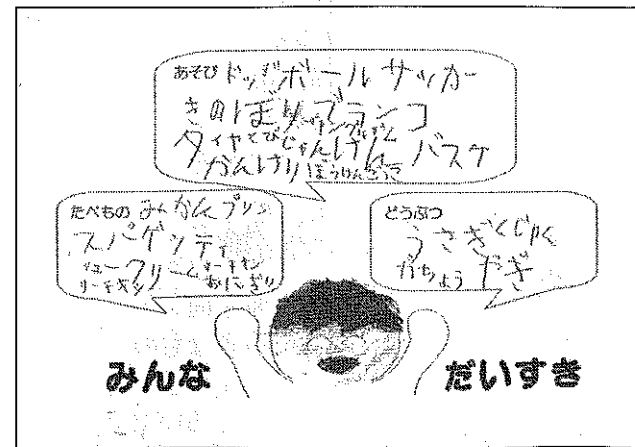 あそび ドッジボール サッカー
きのぼり ブランコ
タイヤとび じゃんけん バスケ
かんけり
たべもの みかん プリン
スパゲッティ
シュークリーム
おにぎり
どうぶつ
うさぎ くじゃく
がちょう やぎ
みんな だいすき